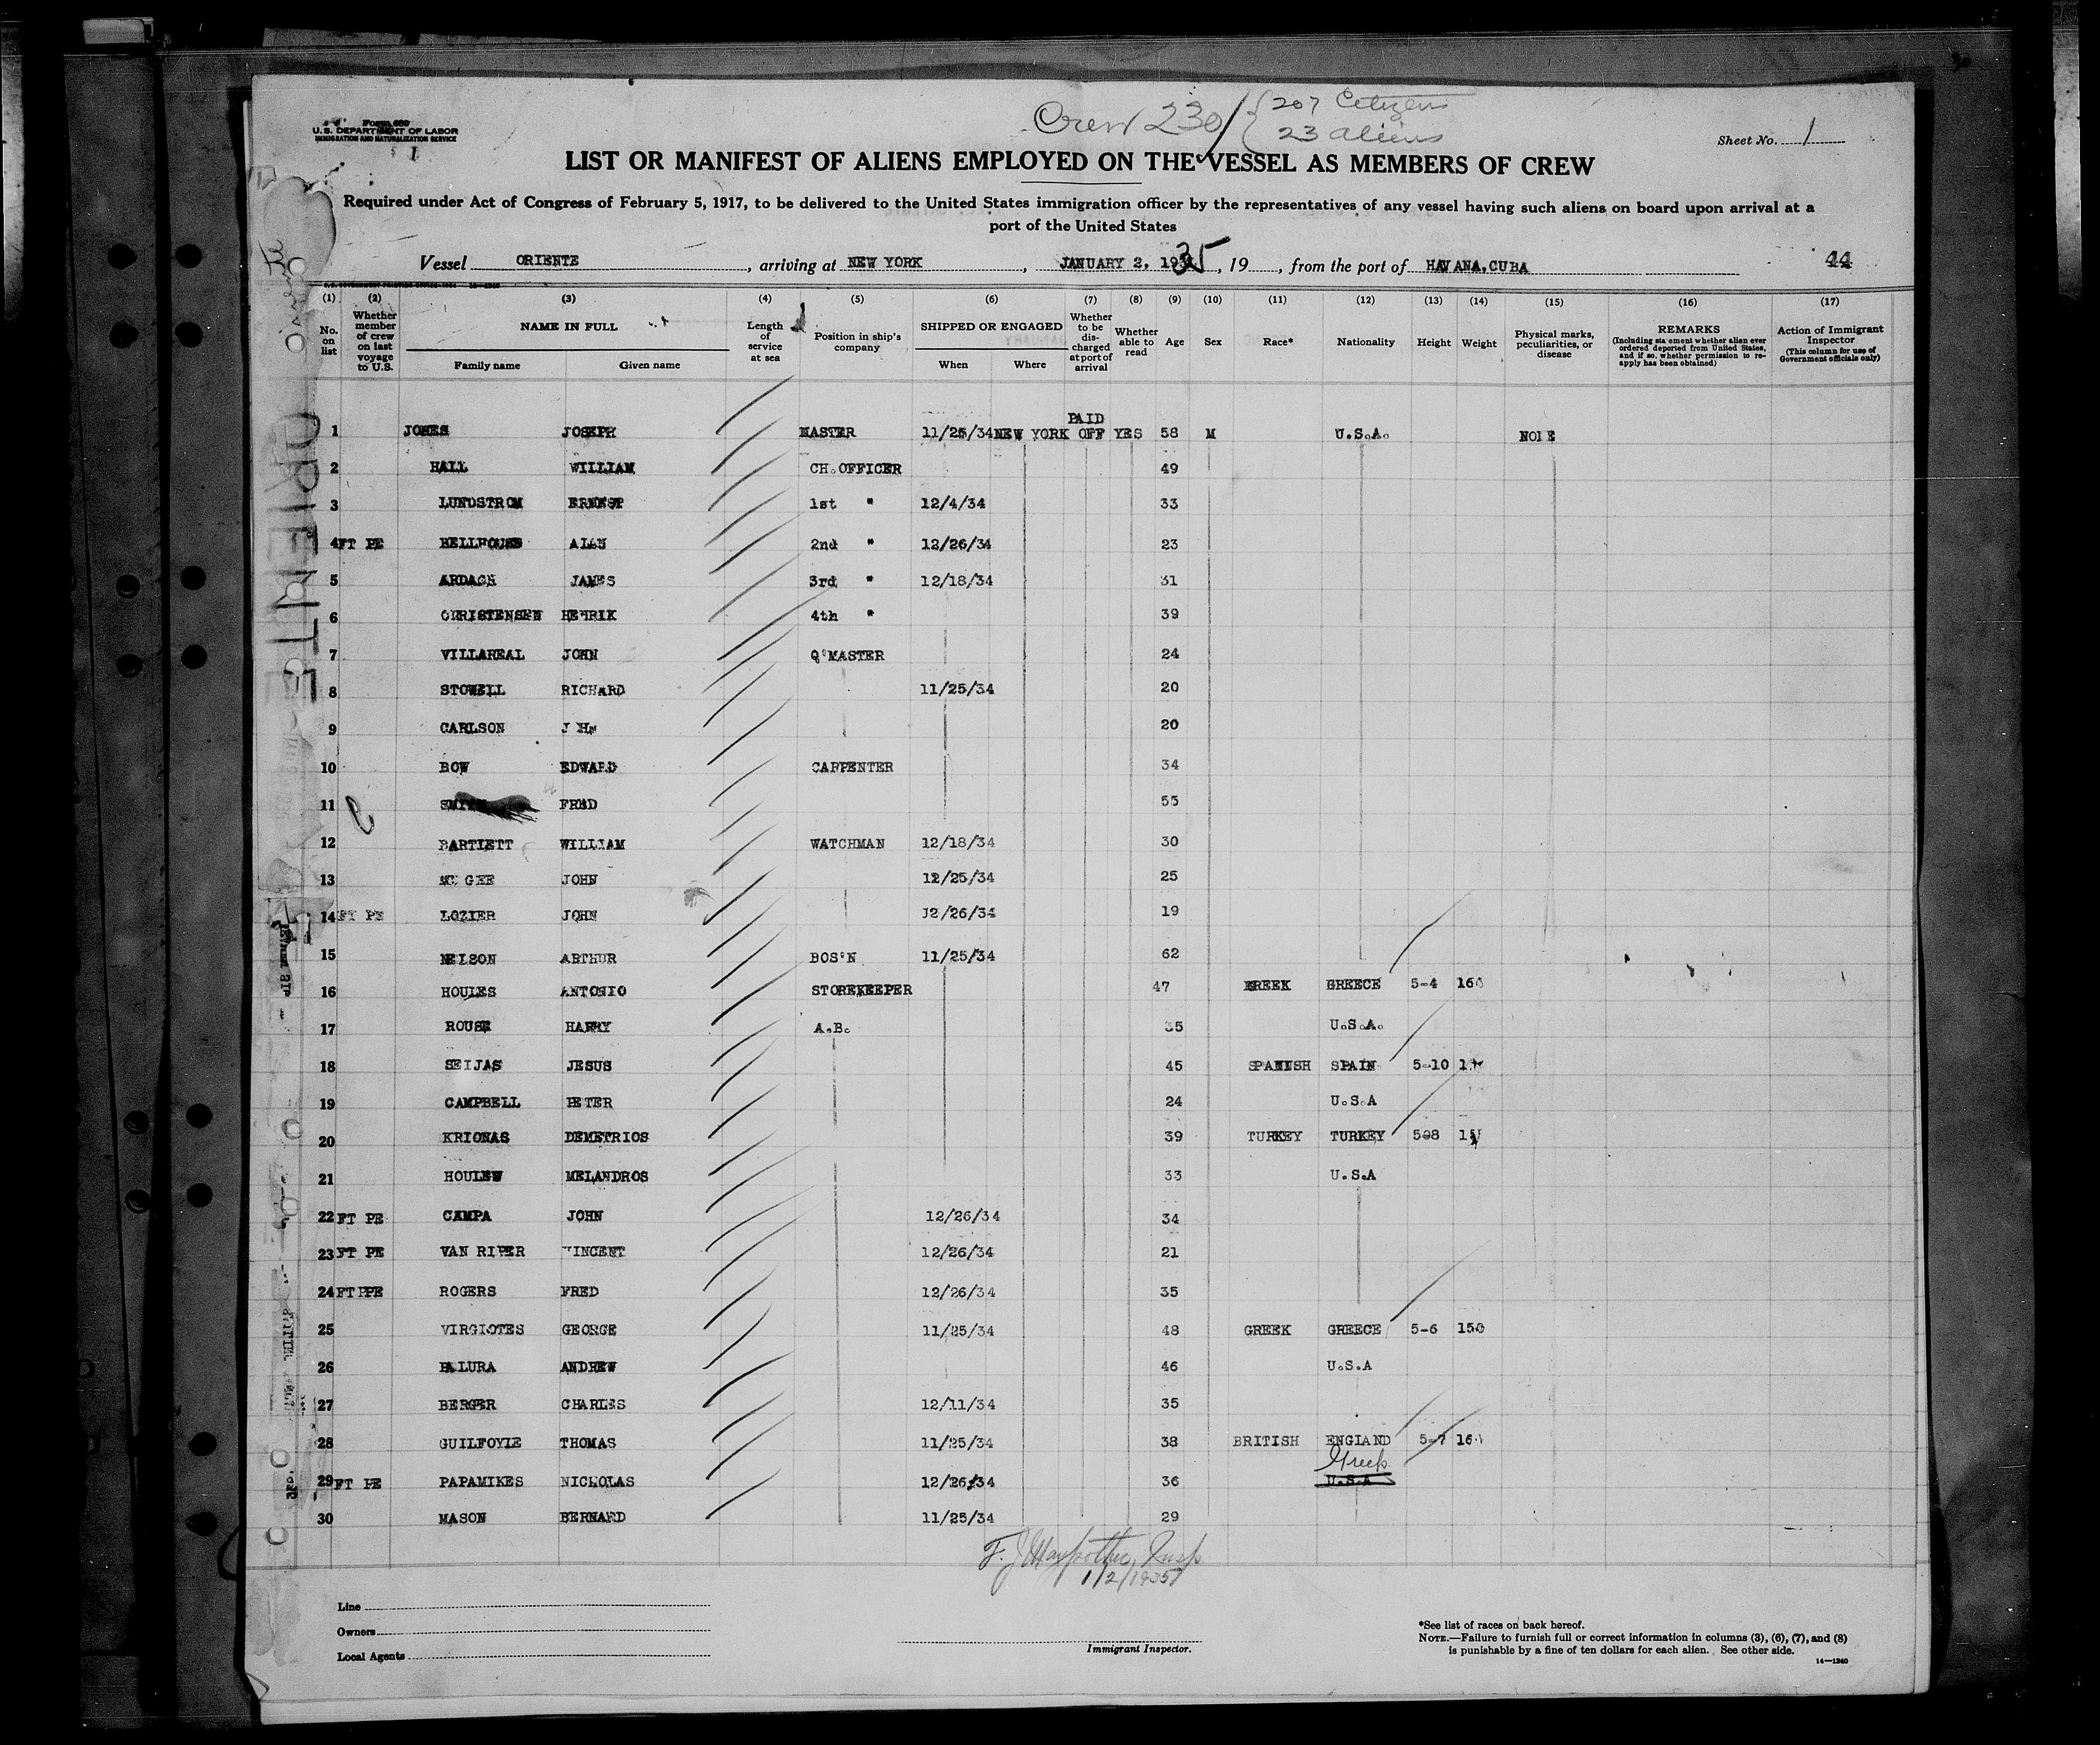 Crew 230 { 207 Citizens
23 aliens
Form 680
U.S. DEPARTMENT OF LABOR
IMMIGRATION AND NATURALIZATION SERVICE
1
Sheet No. 1
LIST OR MANIFEST OF ALIENS EMPLOYED ON THE VESSEL AS MEMBERS OF CREW
Required under Act of Congress of February 5, 1917, to be delivered to the United States immigration officer by the representatives of any vessel having such aliens on board upon arrival at a
port of the United States
Vessel ORIENTE, arriving at NEW YORK, JANUARY 2, 1935, 19, from the port of HAVANA,CUBA 44
(1) (2) (3) (4) (5) (6) (7) (8) (9) (10) (11) (12) (13) (14) (15) (16) (17)
No. on list
Whether member of crew on last voyage to U.S.
NAME IN FULL
Family name Given name
Length of service at sea
Position in ship's company
SHIPPED OR ENGAGED
When Where
Whether to be discharged at port of arrival
Whether able to read
Age
Sex
Race*
Nationality
Height
Weight
Physical marks, peculiarities, or disease
REMARKS
(Including statement whether alien ever ordered deported from United States, and if so, whether permission to reapply has been obtained)
Action of Immigrant Inspector
(This column for use of Government officials only)
PAID
1 JONES JOSEPH MASTER 11/25/34 NEW YORK OFF YES 58 M U.S.A. NONE
2 HALL WILLIAM CH.OFFICER 49
3 LUNDSTROM ERNEST 1st " 12/4/34 33
4 FT PE BELLHOUSE ALAN 2nd " 12/26/34 23
5 ARDAGH JAMES 3rd " 12/18/34 31
6 CHRISTENSEN HENRIK 4th " 39
7 VILLAREAL JOHN Q'MASTER 24
8 STOWELL RICHARD 11/25/34 20
9 CARLSON JOHN 20
10 BOW EDWARD CARPENTER 34
11 SMITH FRED 55
12 BARTLETT WILLIAM WATCHMAN 12/18/34 30
13 MC GEE JOHN 12/25/34 25
14 FT PE LOZIER JOHN 12/26/34 19
15 NELSON ARTHUR BOS'N 11/25/34 62
16 HOULES ANTONIO STOREKEEPER 47 GREEK GREECE 5-4 160
17 ROUSE HARRY A.B. 35 U.S.A.
18 SEIJAS JESUS 45 SPANISH SPAIN 5-10
19 CAMPBELL PETER 24 U.S.A
20 KRIONAS DEMETRIOS 39 TURKEY TURKEY 508
21 HOULEW MELANDROS 33 U.S.A
22 FT PE CAMPA JOHN 12/26/34 34
23 FT PE VAN RIPER VINCENT 12/26/34 21
24 FT PPE ROGERS FRED 12/26/34 35
25 VIRGIOTES GEORGE 11/25/34 48 GREEK GREECE 5-6 150
26 PALURA ANDREW 46 U.S.A
27 BERGER CHARLES 12/11/34 35
28 GUILFOYLE THOMAS 11/25/34 38 BRITISH ENGLAND 5-7 160
Greek
29 FT PE PAPAMIKES NICHOLAS 12/26/34 36 U.S.A
30 MASON BERNARD 11/25/34 29
1/2/1935
Line
Owners
Local Agents
Immigrant Inspector.
*See list of races on back hereof.
NOTE.—Failure to furnish full or correct information in columns (3), (6), (7), and (8)
is punishable by a fine of ten dollars for each alien. See other side.
14—1240
ORIENTE